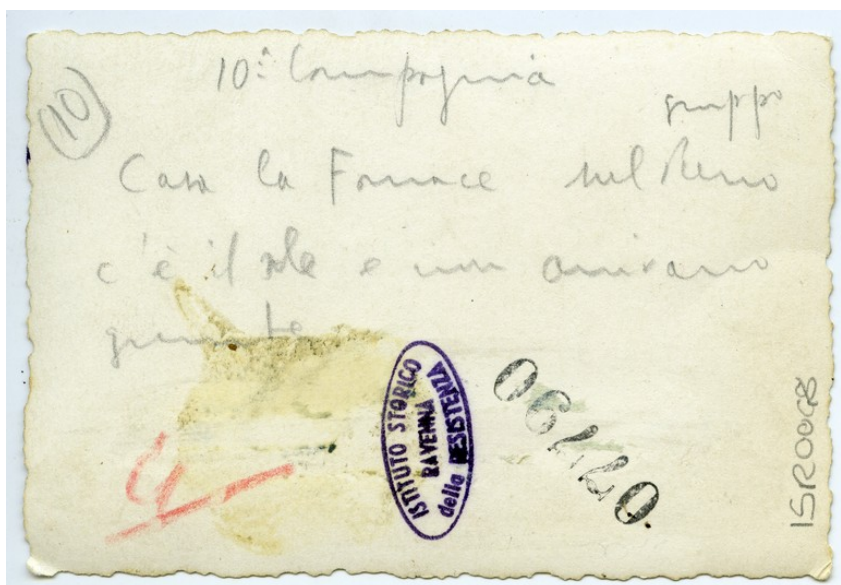 10ª Compagnia
gruppo
10
Casa la Fornace sul Reno
c'è il sole e non arrivano
ISTITUTO STORICO
RAVENNA
della RESISTENZA
4
ISR00G8